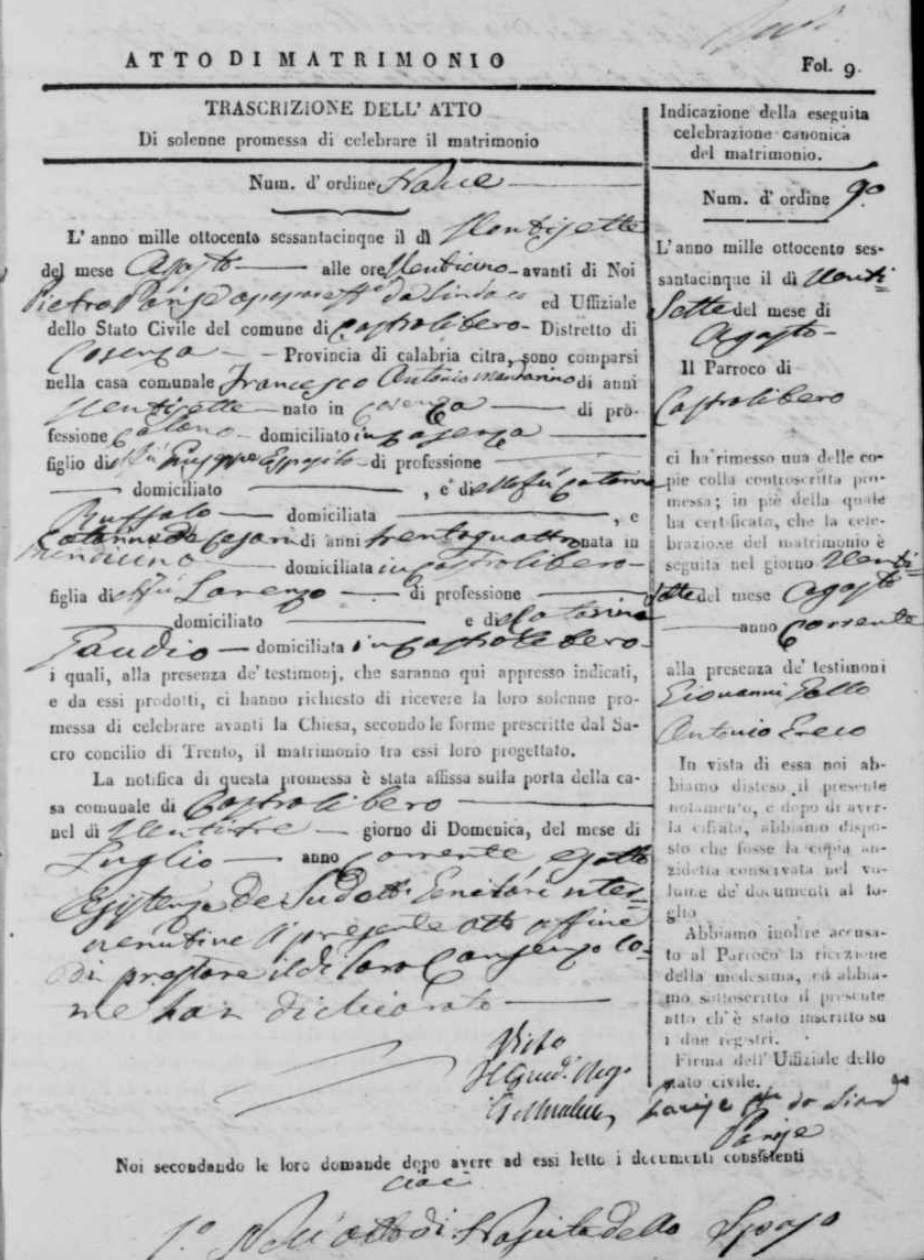 ATTO DI MATRIMONIO
Fol. 9.
TRASCRIZIONE DELL' ATTO
Di solenne promessa di celebrare il matrimonio
Num. d' ordine Nove
L' anno mille ottocento sessantacinqne il dì Ventisette
del mese Agosto alle ore avanti di Noi
Pietro Parise da Sindaco ed Uffiziale
dello Stato Civile del comune di Castrolibero Distretto di
Cosenza Provincia di calabria citra, sono comparsi
nella casa comunale Francesco Antonio Mandarino di anni
Ventisette nato in Cosenza di pro-
fessione domiciliato in Cosenza
figlio di Giuseppe Esposito di professione
domiciliato , e di
Ruffalo domiciliata , e
Catarina de Cesari di anni trentaquattro nata in
Mendicino domiciliata in Castrolibero
figlia di Lorenzo di professione
domiciliato e di Catarina
Gaudio domiciliata in Castrolibero
i quali, alla presenza de' testimonj, che saranno qui appresso indicati,
e da essi prodotti, ci hanno richiesto di ricevere la loro solenne pro-
messa di celebrare avanti la Chiesa, secondo le forme prescritte dal Sa-
cro concilio di Trento, il matrimonio tra essi loro progettato.
La notifica di questa promessa è stata affissa sulla porta della ca-
sa comunale di Castrolibero
nel dì Ventitre giorno di Domenica, del mese di
Luglio anno corrente
de Sudotti Genitori inter-
il presente atto affine
di prestare il di loro Consenzo co-
me han dichiarato
Visto
Il Giud.
Indicazione della eseguita
celebrazione canonica
del matrimonio.
Num. d' ordine 9.º
L' anno mille ottocento ses-
santacinque il dì Venti
Sette del mese di
Agosto
Il Parroco di
Castrolibero
ci ha rimesso una delle co-
pie colla controscritta pro-
messa; in piè della quale
ha certificato, che la cele-
brazione del matrimonio è
seguita nel giorno Venti
sette del mese Agosto
anno Corrente
alla presenza de' testimoni
Giovanni
Antonio Greco
In vista di essa noi ab-
biamo disteso il presente
notamento, e dopo di aver-
la cifrata, abbiamo dispo-
sto che fosse la copia an-
zidetta conservata nel vo-
lume de' documenti al fo-
glio
Abbiamo inoltre accusa-
to al Parroco la ricezione
della medesima, ed abbia-
mo sottoscritto il presente
atto ch' è stato inscritto su
i due registri.
Firma dell' Uffiziale dello
stato civile.
Parise da Sind
Parise
Noi secondando le loro domande dopo avere ad essi letto i documenti consistenti
cioè
1.º Nell' atto di Nascita dello Sposo